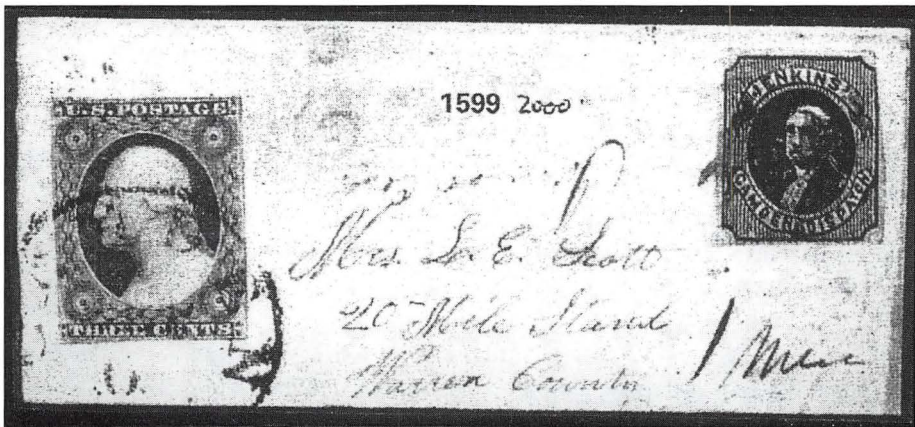 U.S. POSTAGE
THREE CENTS
1599 2000
JENKINS'
CAMDEN DISPATCH
Mrs. L. E. Scott
20 Mile Stand
Warren County